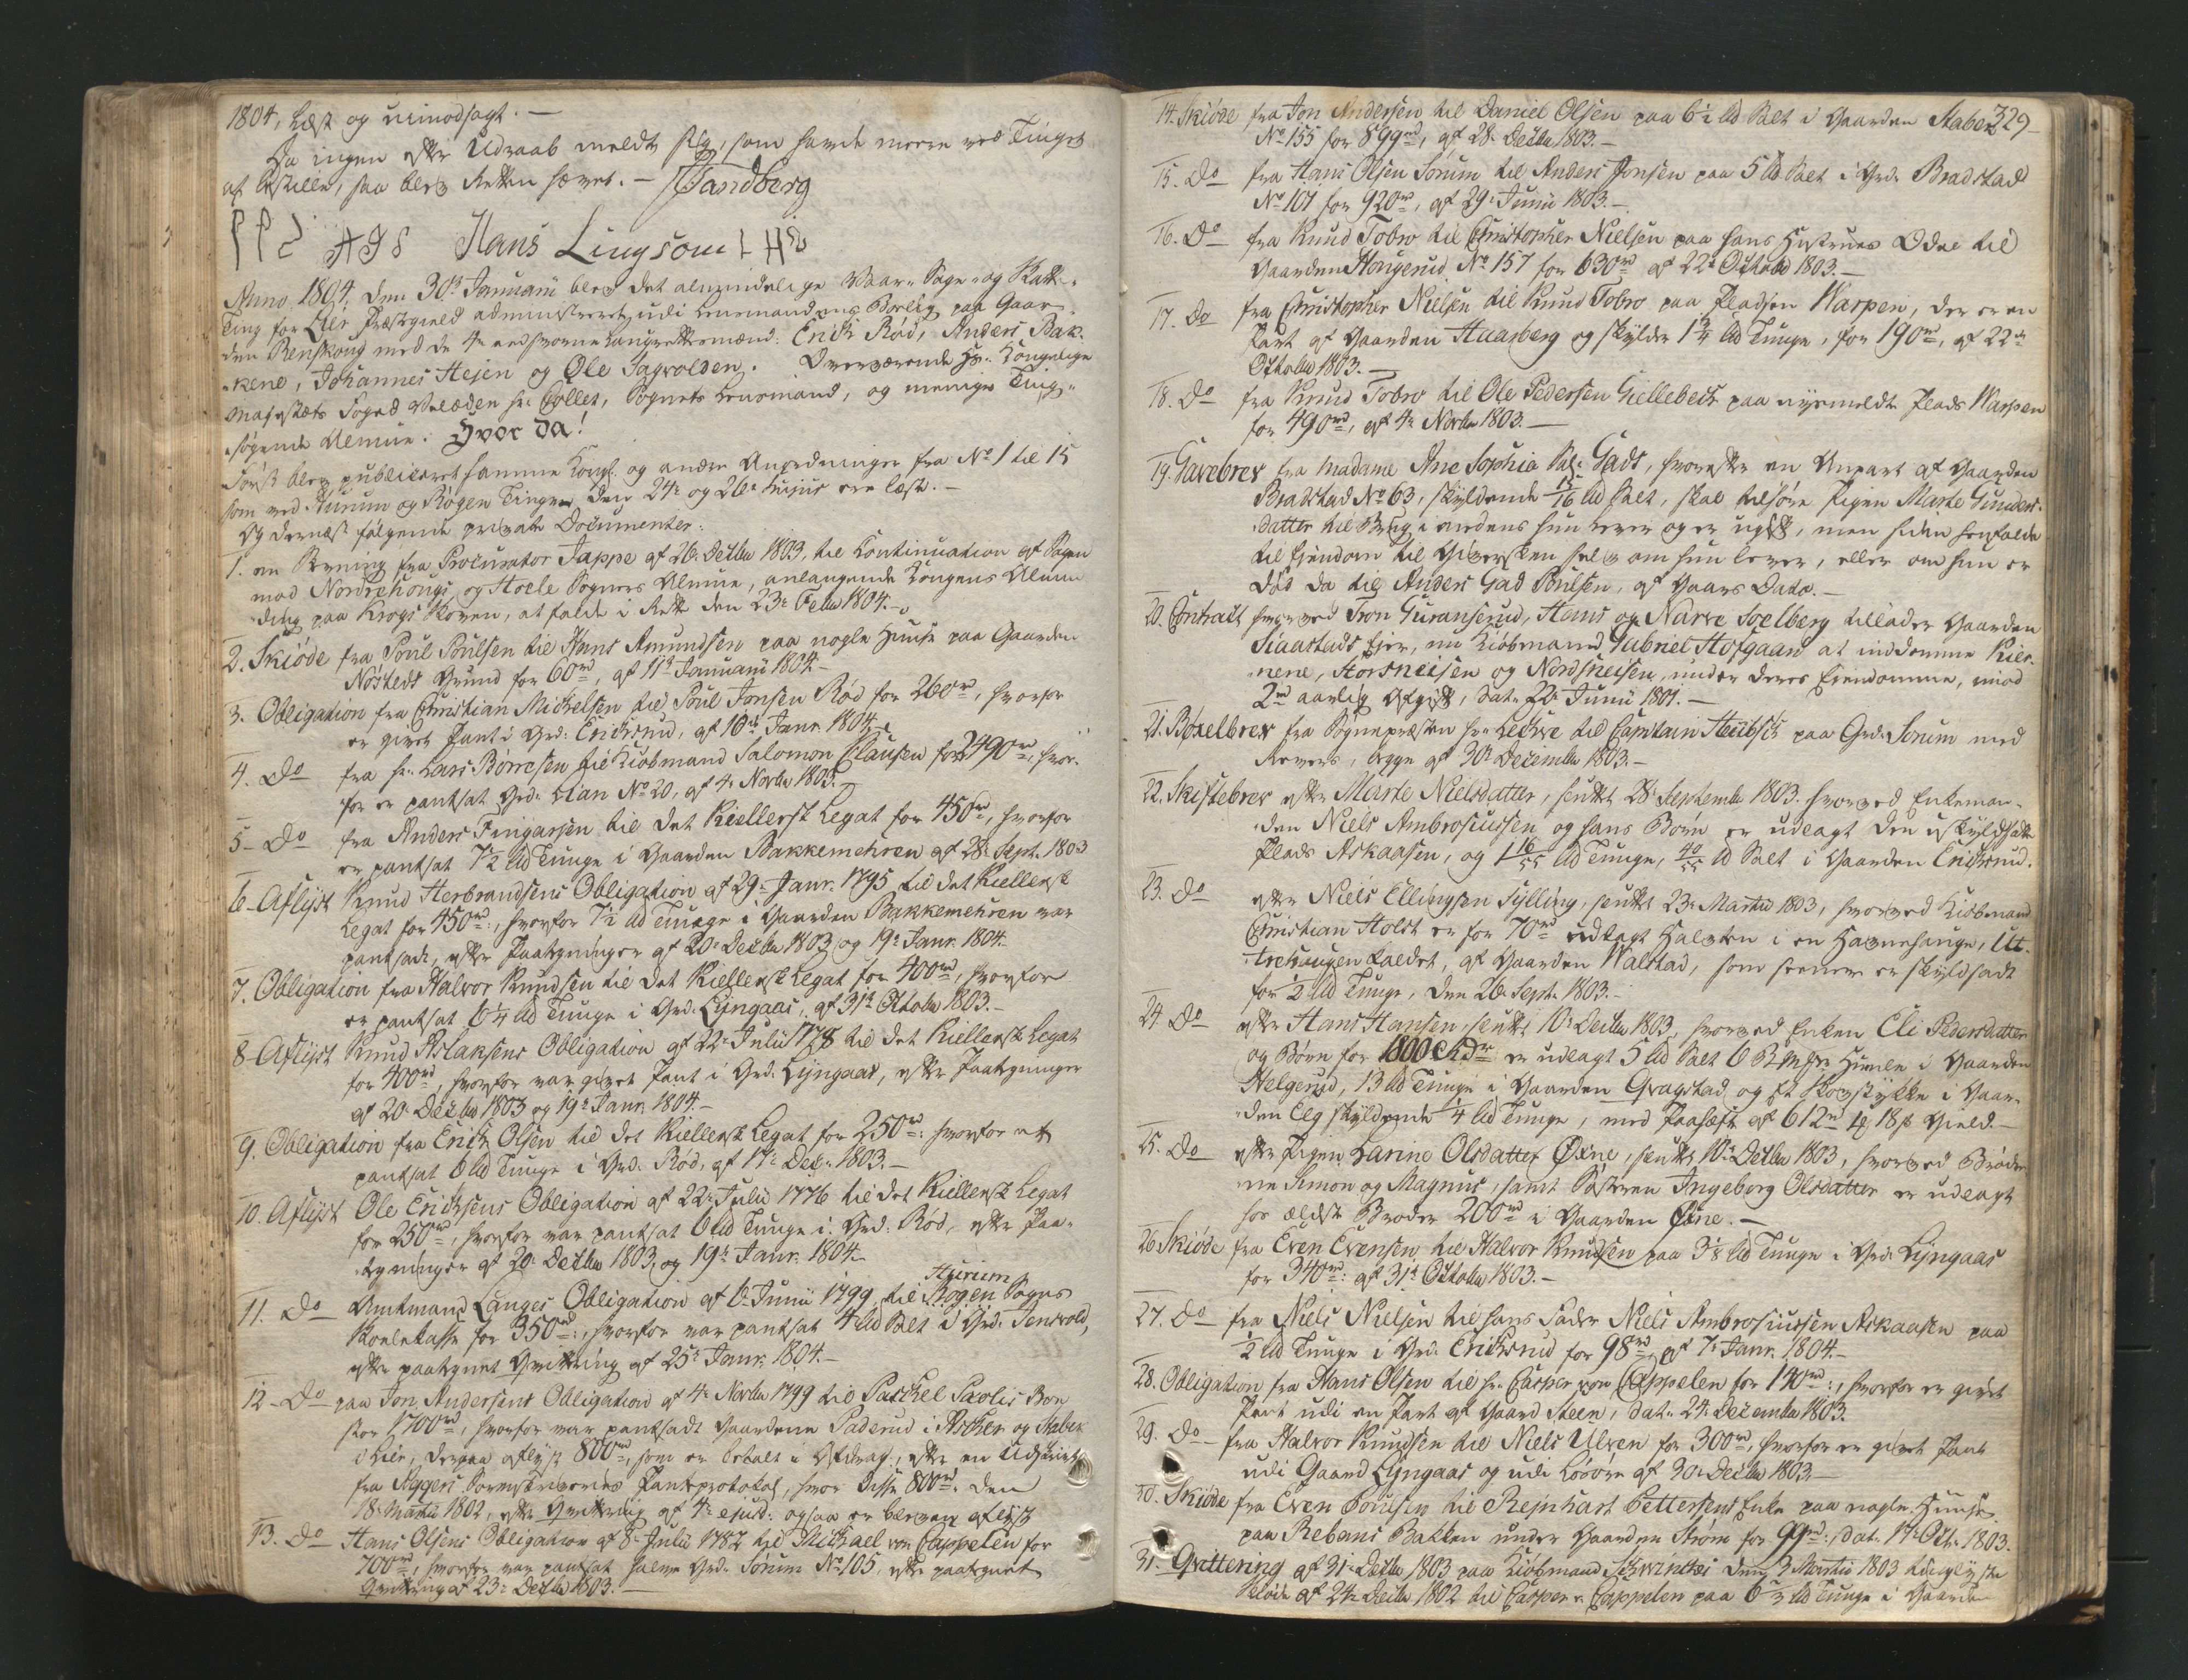 1804, læst og uimodsagt. —
Da ingen efter Udraab meldte sig, som havde meere ved Tinget
at bestille, saa blev Retten hævet. — Sandberg
Hans Lingsom
Anno 1804, den 30te Januarii blev det almindelige Vaar- Sage- og Skatte-
Ting for Lier Præstegield administreret udi Lensmandens Boelig paa Gaar-
den Renskoug med de 4re eedsvorne Laugrettesmænd: Erich Rød, Anders Bak-
kene, Johannes Hejen og Ole Jagvolden. Overværende Hs. Kongelige
Majestæts Foged Velædle hr. Collet, Sognets Lensmand, og menige Ting-
søgende Almue. Hvor da!
Først blev publiceret samme Kongl. og andre Anordninger fra No 1 til 15
som ved Hurum og Røgen Tingene den 24de og 26de hujus ere læste. —
Og dernæst følgende private Documenter:
1. en Stevning fra Procurator Jappe af 26. Decbr 1803, til Continuation af Sagen
mod Nordrehougs og Hoele Sognes Almue, anlangende Kongens Almen-
ding paa Krogskoven, at falde i Rette den 23de Febr 1804. —
2. Skiøde fra Poul Poulsen til Hans Amundsen paa nogle Huuse paa Gaarden
Nøsteds Grund for 60rd, af 11te Januarii 1804. —
3. Obligation fra Christian Michelsen til Poul Jonsen Rød for 260rd, hvorfor
er givet Pant i Grd. Ericksrud, af 10de Janr. 1804. —
4. Do fra hr. Lars Børresen til Kiøbmand Salomon Clausen for 2490rd, hvor-
for er pantsat Grd. Lian No 20, af 4. Novbr 1803. —
5. Do fra Anders Fingarsen til det Kiellersk Legat for 450rd, hvorfor
er pantsat 7½ lid Tunge i Gaarden Bakkemehren af 28. Sept. 1803
6. Aflyst Knud Herbrandsens Obligation af 29. Janr. 1795 til det Kiellersk
Legat for 450rd, hvorfor 7½ lid Tunge i Gaarden Bakkemehren var
pantsadt, efter Paategninger af 20. Decbr 1803 og 19. Janr. 1804.
7. Obligation fra Halvor Knudsen til det Kiellersk Legat for 400rd, hvorfor
er pantsat 6¼ lid Tunge i Grd. Lyngaas, af 31te Octobr 1803. —
8. Aflyst Knud Aslaksens Obligation af 22. Julii 1778 til det Kiellersk Legat
for 400rd, hvorfor var givet Pant i Grd. Lyngaas, efter Paategninger
af 20. Decbr 1803 og 19. Janr. 1804. —
9. Obligation fra Erich Olsen til det Kiellersk Legat for 250rd: hvorfor er
pantsat 6 lid Tunge i Grd. Rød, af 17. Dec. 1803. —
10. Aflyst Ole Ericksens Obligation af 22. Julii 1776 til det Kiellersk Legat
for 250rd, hvorfor var pantsat 6 lid Tunge i Grd. Rød, efter Paa-
tegninger af 20. Decbr 1803, og 19. Janr. 1804. —
Hurum
11. Do Amtmand Langes Obligation af 6. Junii 1799, til Røgen Sogns
Skolekasse for 350rd:, hvorfor var pantsat 4 lid Salt i Grd. Jensvold,
efter paategnet Qvittering af 25. Janr. 1804. —
12. Do paa Jon Andersens Obligation af 4. Novbr 1799 til Paschel Paolis Bon
stor 1700rd, hvorfor var pantsadt Gaardene Paderud i Asker og Staber
i Lier, derpaa aflyst 800rd, som er betalt i Afdrag, efter en Udskrivt
fra Aggers Sorenskriveries Panteprotokol, hvor disse 800rd. den
18. Martii 1802, efter Qvittering af 4. ejusd: ogsaa er bleven aflyst
13. Do Hans Olsens Obligation af 8. Julii 1782 til Michael von Cappelen for
700rd, hvorfor var pantsat halve Grd. Sørum No 105, efter paategnet
Qvittering af 23. Decbr 1803. —
329
14. Skiøde fra Jon Andersen til Daniel Olsen paa 6½ lid Salt i Gaarden Staber
No 155 for 899rd, af 28. Decbr 1803. —
15. Do fra Hans Olsen Sørum til Anders Jonsen paa 5 lid Salt i Grd. Bradstad
No 101 for 920rd, af 29. Junii 1803. —
16. Do fra Knud Tobro til Christopher Nielsen paa hans Hustrues Odel til
Gaarden Hougerud No 157 for 630rd af 22. Octobr 1803. —
17. Do fra Christopher Nielsen til Knud Tobro paa Pladsen Warpen, der er en
Part af Gaarden Huasberg og skylder 1¾ lid Tunge, for 190rd, af 22de
Octobr 1803. —
18. Do fra Knud Tobro til Ole Pedersen Gillebech paa nysmeldte Plads Warpen
for 490rd, af 4. Novbr 1803. —
19. Gavebrev fra Madame Ane Sophia Sal. Gads, hvorefter en Anpart af Gaarden
Bradstad No 63, skyldende 15/16 lid Salt, skal tilhøre Pigen Marte Gunders-
datter til Brug imedens hun lever og er ugift, men siden henfalde
til Eiendom til Giversken selv om hun lever, eller om hun er
død da til Anders Gad Poulsen, af Gaars Dato. —
20. Contract hvorved Tron Guranserud, Hans og Narve Soelberg tillader Gaarden
Siaastads Ejer, nu Kiøbmand Gabriel Hofgaard at inddemme Kier-
nene, Storsneisen og Nordsneisen, under deres Eiendomme, imod
2rd aarlig Afgift, dat. 22. Junii 1801. —
21. Bøxelbrev fra Sognepresten hr. Leckve til Capitain Heübsch paa Grd. Sorum med
Revers, begge af 30. Decembr 1803. —
22. Skiftebrev efter Marte Nielsdatter, sluttet 28. Septembr 1803. hvorved Enkeman-
den Niels Ambrosiussen og hans Børn er udlagt den uskyldsatte
Plads Askaasen, og 1 16/55 lid Tunge, 40/55 lb Salt i Gaarden Ericksrud.
23. Do efter Niels Ellingsen Sylling, sluttet 23. Martii 1803, hvorved Kiøbmand
Christian Holst er for 70rd udlagt Halvten i en Havnehauge, Ut-
trehougen kaldet, af Gaarden Walstad, som senere er skyldsadt
for ½ lid Tunge, den 26. Sept. 1803. —
24. Do efter Hans Hansen, sluttet 10. Decbr 1803, hvorved Enken Eli Pedersdatter
og Børn for 1800 Rdr er udlagt 5 lid Salt 6 Huder i Gaarden
Helgerud, 13 lid Tunge i Gaarden Gragstad og et Skovstykke i Gaar-
den Elg skyldende ¼ lid Tunge, med Paahæfte af 612rd 18s Gield. —
25. Do efter Pigen Larine Olsdatter Øxne, sluttet 10. Decbr 1803, hvorved Brødre-
ne Simon og Magnus, samt Søsteren Ingeborg Olsdatter er udlagt
hos ældste Broder 200rd i Gaarden Øxne. —
26. Skiøde fra Even Evensen til Halvor Knudsen paa 3⅛ lid Tunge i Grd. Lyngaas
for 340rd: af 31te Octobr 1803. —
27. Do fra Niels Nielsen til hans Fader Niels Ambrosiussen Askaasen paa
½ lid Tunge i Grd. Ericksrud for 98rd, af 7. Janr. 1804. —
28. Obligation fra Hans Olsen til hr. Casper von Cappelen for 140rd:, hvorfor er givet
Pant udi en Part af Gaard Steen, dat. 24. Decembr 1803.
29. Do fra Halvor Knudsen til Niels Ulven for 300rd, hvorfor er givet Pant
udi Gaard Lyngaas og udi Løsøre af 30. Decbr 1803. —
30. Skiøde fra Even Poulsen til Rejnhart Pettersens Enke paa nogle Huuse
paa Rebans Bakken under Gaarden Strøm for 99rd: dat. 17. Oct. 1803.
31. Qvittering af 31. Decbr 1803 paa Kiøbmand Schwinttes den 3. Martii 1803 tinglyste
Skiøde af 24. Decbr 1802 til Casper v. Cappelen paa 6 lid Tunge i Gaarden